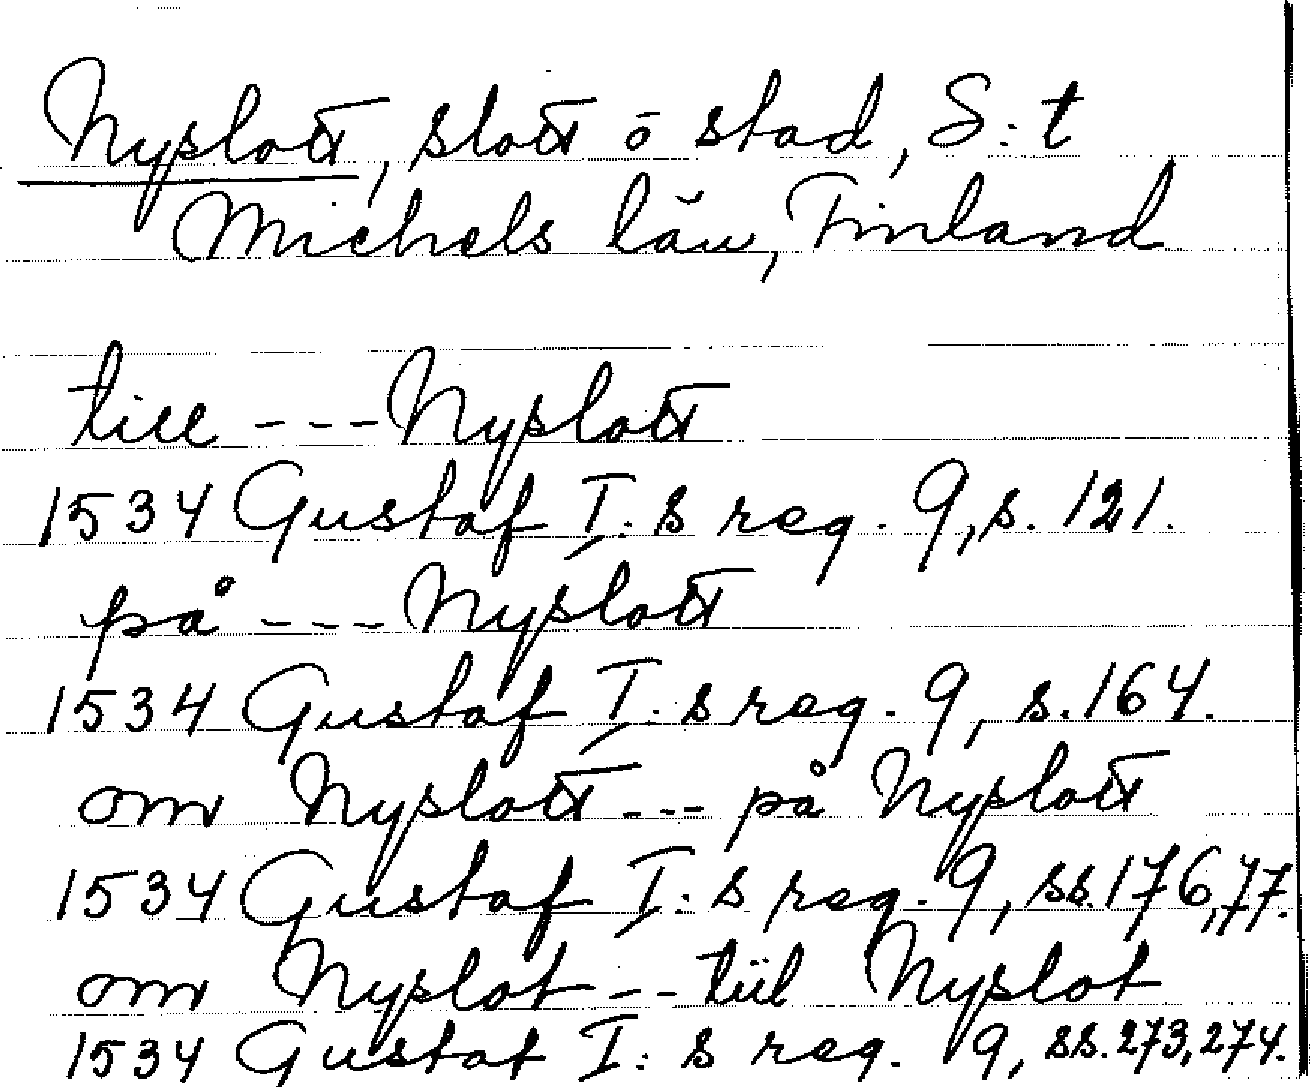 Nyslott, slott o stad, S:t
Michels län, Finland
till --- Nyslott
1534 Gustaf I:s reg. 9, s. 121.
på --- Nyslott
1534 Gustaf I:s reg. 9, s. 164.
om Nyslott --- på Nyslott
1534 Gustaf I:s reg. 9, ss. 176, 77.
om Nyslot -- tiil Nyslot
1534 Gustaf I:s reg. 9, ss. 273, 274.